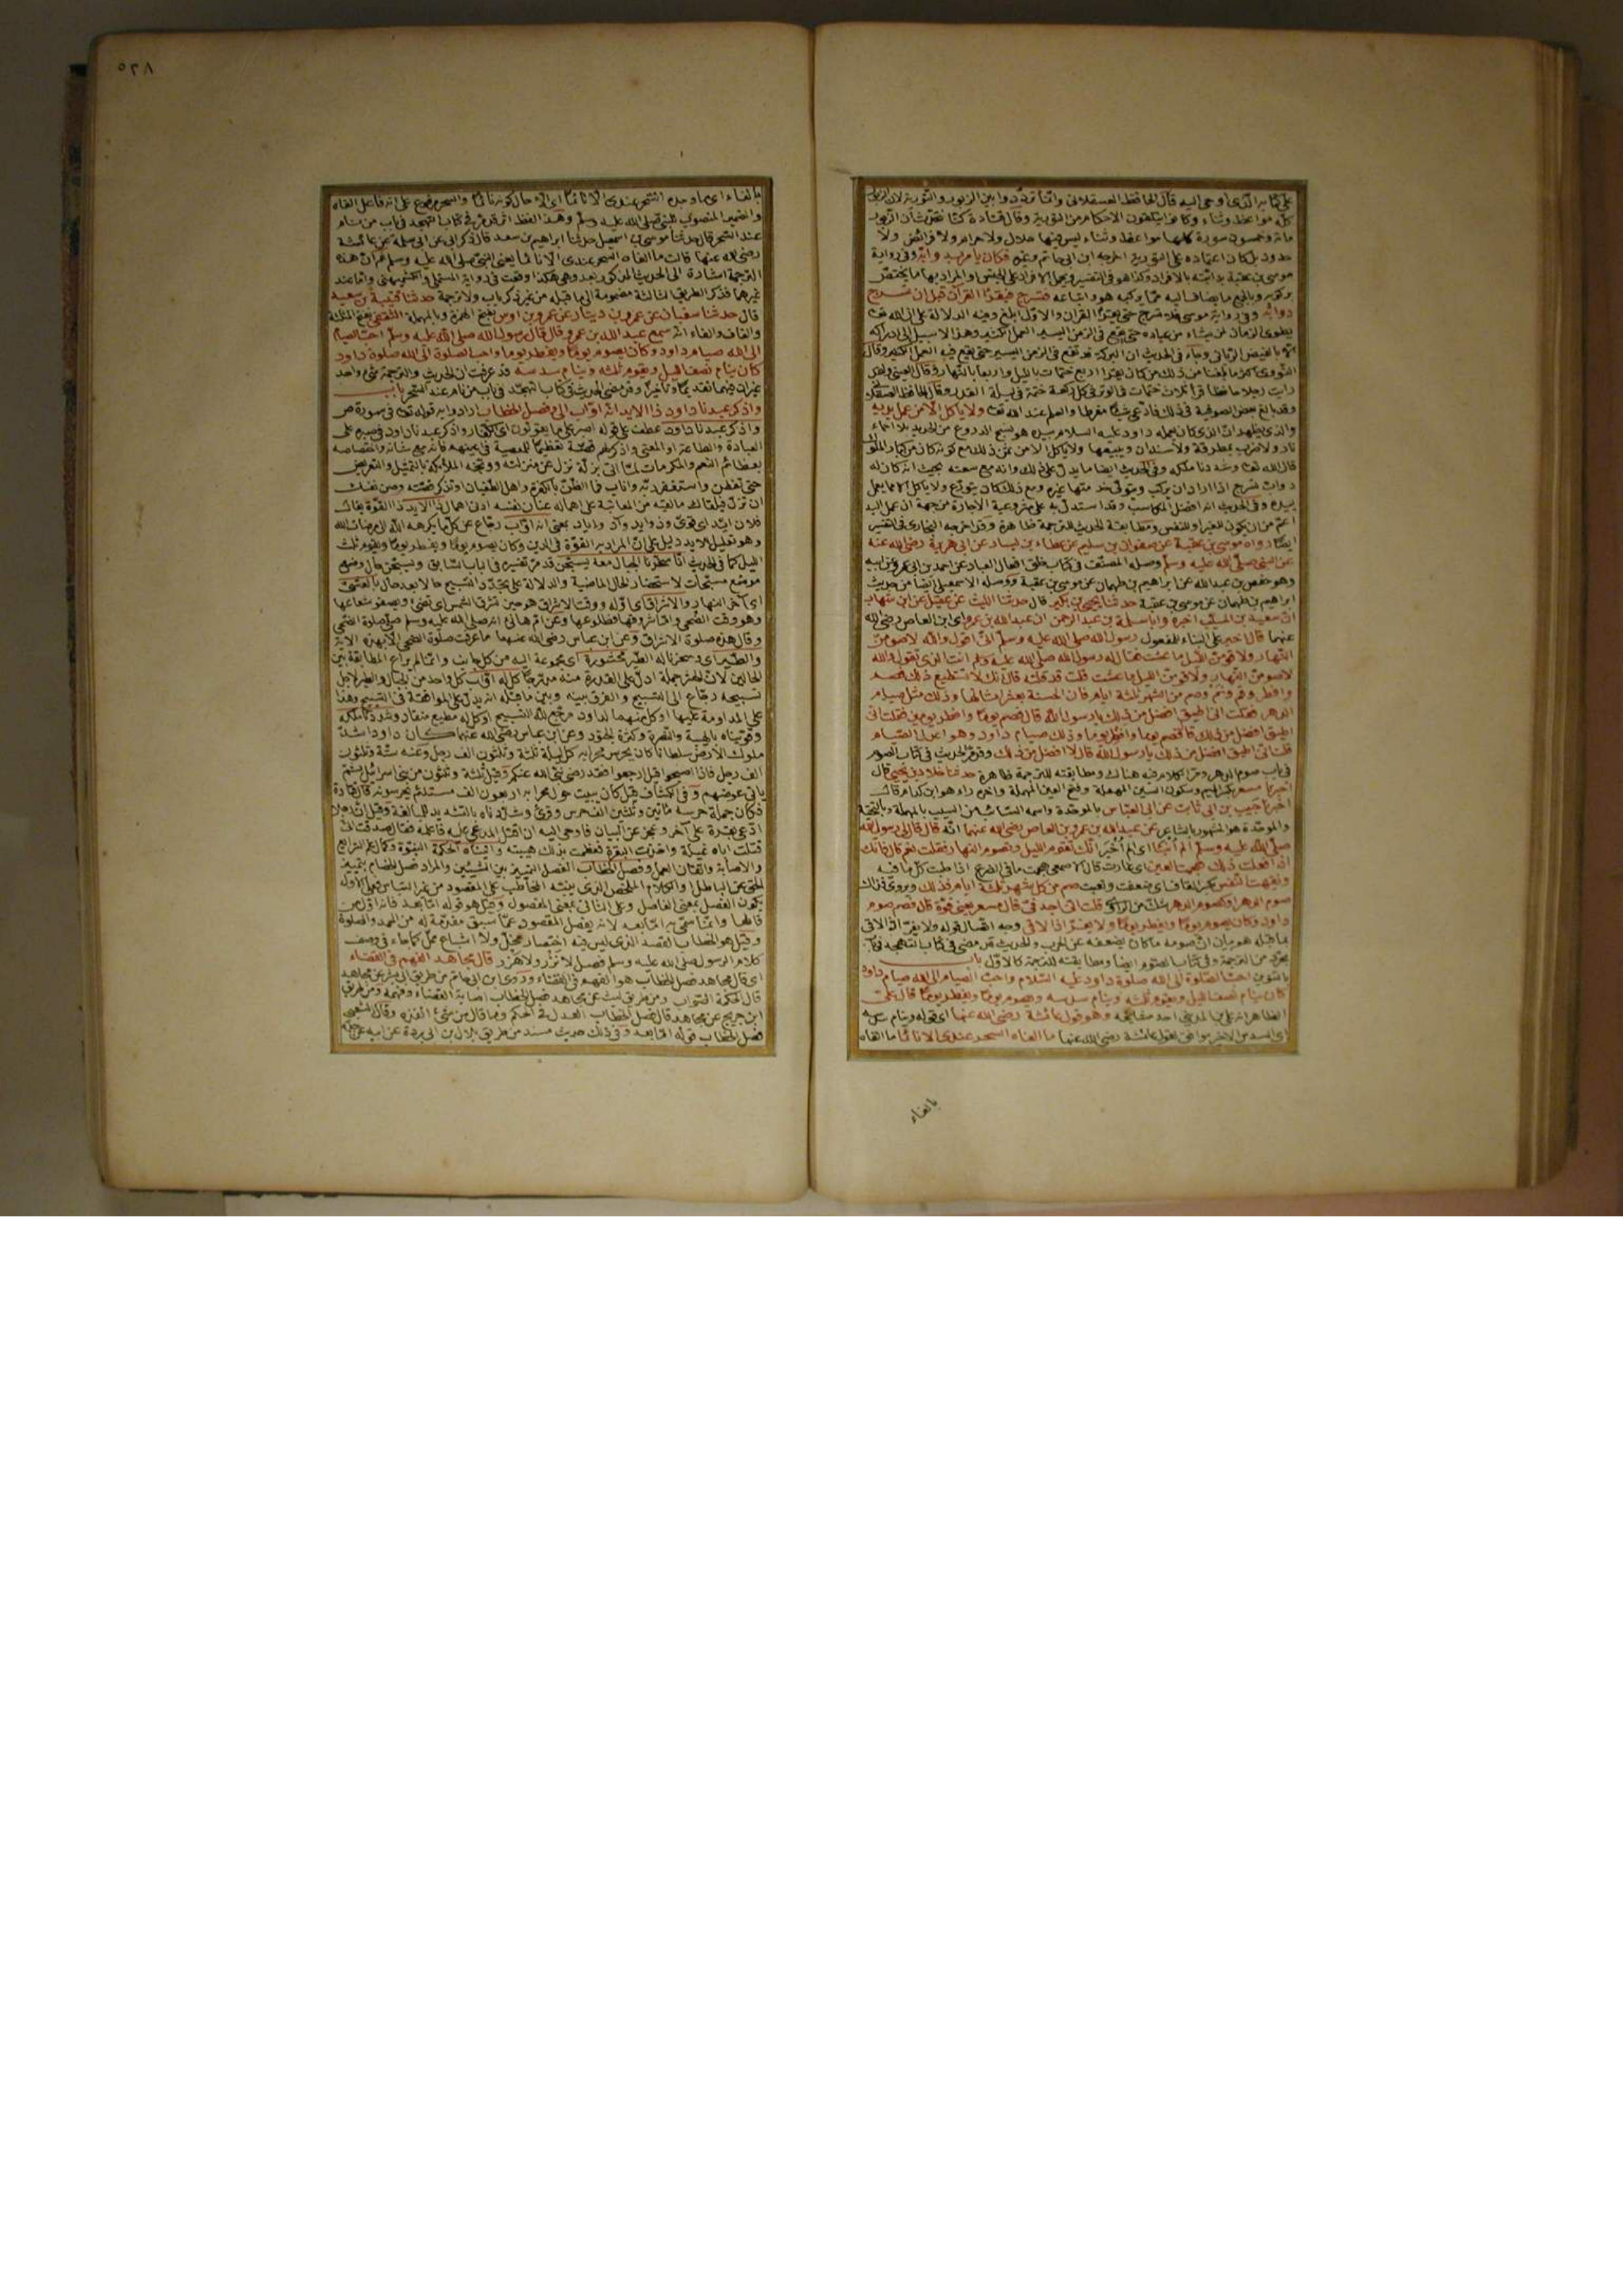 على كتابه الذي أوحى إليه قال الحافظ العسقلاني وإنما ترددوا بين الزبور والتورية لأن الزبور
كله مواعظ وثناء وكانوا يتلقون الأحكام من التورية وقال قتادة كنا نتحدث أن الزبور
مائة وخمسون سورة كلها مواعظ وثناء ليس فيها حلال ولا حرام ولا فرائض ولا
حدود بل كان اعتماده على التورية أخرجه ابن أبي حاتم وغيره فكان يأمر بدوابه وفي رواية
موسى بن عقبة بدابته بالإفراد وكذا هو في التفسير ويحمل الإفراد على الجنس أو المراد بها ما يختص
بركوبه وبالجمع ما يضاف إليه مما يركبه هو وأتباعه فتسرج فيقرأ القرآن قبل أن تسرج
دوابه وفي رواية موسى فلا تسرج حتى يقرأ القرآن والأول أبلغ وفيه الدلالة على أن الله تعالى
يطوي الزمان لمن يشاء من عباده حتى يقع في الزمن اليسير العمل الكثير وهذا لا سبيل إلى إدراكه
إلا بالفيض الرباني وجاء في الحديث أن البركة قد تقع في الزمن اليسير حتى يقع فيه العمل الكثير وقال
النووي أكثر ما بلغنا من ذلك من كان يقرأ أربع ختمات بالليل وأربعا بالنهار وقال العيني ولقد
رأيت رجلا حافظا قرأ ثلاث ختمات في الوتر في كل ركعة ختمة في ليلة القدر وقال الحافظ العسقلاني
وقد بالغ بعض الصوفية في ذلك فادعى شيئا مفرطا والعلم عند الله تعالى ولا يأكل إلا من عمل يديه
والذي يظهر أن الذي كان يعمله داود عليه السلام بيده هو نسج الدروع من الحديد بلا إحماء
نار ولا ضرب بمطرقة ولا سندان ويبيعها ولا يأكل إلا من ثمن ذلك مع كونه كان من كبار الملوك
قال الله تعالى وشددنا ملكه وفي الحديث أيضا ما يدل على ذلك وأنه مع سعته بحيث أنه كان له
دواب تسرج إذا أراد أن يركب ويتولى خدمتها غيره ومع ذلك كان يتورع ولا يأكل إلا مما يعمل
بيده وفي الحديث أنه أفضل المكاسب وقد استدل به على مشروعية الإجارة من جهة أن عمل اليد
أعم من أن يكون للغير أو للنفس ومطابقة الحديث للترجمة ظاهرة وقد أخرجه البخاري في التفسير
أيضا رواه موسى بن عقبة عن صفوان بن سليم عن عطاء بن يسار عن أبي هريرة رضي الله عنه
عن النبي صلى الله عليه وسلم وصله المصنف في كتاب خلق أفعال العباد عن أحمد بن أبي عمرو عن أبيه
وهو حفص بن عبدالله عن إبراهيم بن طهمان عن موسى بن عقبة ووصله الاسمعيلي أيضا من حديث
إبراهيم بن طهمان عن موسى بن عقبة حدثنا يحيى بن بكير قال حدثنا الليث عن عقيل عن ابن شهاب
أن سعيد بن المسيب أخبره وأبا سلمة بن عبد الرحمن أن عبدالله بن عمرو أي ابن العاص رضي الله
عنهما قال أخبر على البناء للمفعول رسول الله صلى الله عليه وسلم أني أقول والله لأصومن
النهار ولأقومن الليل ما عشت فقال له رسول الله صلى الله عليه وسلم أنت الذي تقول والله
لأصومن النهار ولأقومن الليل ما عشت قلت قد قلته قال إنك لا تستطيع ذلك فصم
وأفطر وقم ونم وصم من الشهر ثلثة أيام فإن الحسنة بعشر أمثالها وذلك مثل صيام
الدهر فقلت إني أطيق أفضل من ذلك يا رسول الله قال فصم يوما وأفطر يومين فقلت إني
أطيق أفضل من ذلك قال فصم يوما وأفطر يوما وذلك صيام داود وهو أعدل الصيام
قلت إني أطيق أفضل منه يا رسول الله قال لا أفضل من ذلك وقد مر الحديث في كتاب الصوم
في باب صوم الدهر ومر الكلام فيه هناك ومطابقته للترجمة ظاهرة حدثنا خلاد بن يحيى قال
أخبرنا مسعر بكسر الميم وسكون السين المهملة وفتح العين المهملة وآخره راء هو ابن كدام قال
أخبرنا حبيب بن أبي ثابت عن أبي العباس بالموحدة واسمه السائب من السيب بالمهملة وبالتحتية
والموحدة هو المشهور بالشاعر عن عبدالله بن عمرو بن العاص رضي الله عنهما أنه قال قال لي رسول الله
صلى الله عليه وسلم ألم أنبأ أي ألم أخبر أنك تقوم الليل وتصوم النهار فقلت نعم قال فإنك
إذا فعلت ذلك هجمت العين أي غارت قال الأصمعي هجمت ما في الضرع إذا حلبت كل ما فيه
ونفهت النفس بكسر الفاء أي ضعفت وتعبت صم من كل شهر ثلثة أيام فذلك ويروى فذاك
صوم الدهر أو كصوم الدهر شك من الراوي قلت إني أجد بي قال مسعر يعني قوة قال فصم صوم
داود وكان يصوم يوما ويفطر يوما ولا يفر إذا لاقى وجه اتصال قوله ولا يفر إذا لاقى
بما قبله هو بيان أن صومه ما كان يضعفه عن الحرب والحديث قد مضى في كتاب التهجد في باب
مجرد من الترجمة وفي كتاب الصوم أيضا ومطابقته للترجمة كالأول باب
بالتنوين أحب الصلوة إلى الله صلوة داود عليه السلام وأحب الصيام إلى الله صيام داود
كان ينام نصف الليل ويقوم ثلثه وينام سدسه ويصوم يوما ويفطر يوما قال علي
الظاهر أنه علي بن المديني أحد مشايخه وهو قول عائشة رضي الله عنها أي قوله وينام سدسه
أي السدس الأخير موافق لقول عائشة رضي الله عنها ما ألفاه السحر عندي إلا نائما ما ألفاه
بالفاء
٥٢٨
بالفاء أي ما وجده السحر عندي إلا نائما أي إلا حال كونه نائما والسحر مرفوع على أنه فاعل ألفاه
والضمير المنصوب للنبي صلى الله عليه وسلم وهذا اللفظ أثر قد مر في كتاب التهجد في باب من نام
عند السحر قال حدثنا موسى بن اسمعيل حدثنا إبراهيم بن سعد قال ذكر أبي عن أبي سلمة عن عائشة
رضي الله عنها قالت ما ألفاه السحر عندي إلا نائما يعني النبي صلى الله عليه وسلم ثم إن هذه
الترجمة إشارة إلى الحديث المذكور بعد وهي هكذا وقعت في رواية المستملي والكشميهني وأما عند
غيرهما فذكر الطريق الثالثة مضمومة إلى ما قبله من غير ذكر باب ولا ترجمة حدثنا قتيبة بن سعيد
قال حدثنا سفيان عن عمرو بن دينار عن عمرو بن أوس بفتح الهمزة وبالمهملة الثقفي بفتح المثلثة
والقاف والفاء أنه سمع عبد الله بن عمرو قال قال رسول الله صلى الله عليه وسلم أحب الصيام
إلى الله صيام داود وكان يصوم يوما ويفطر يوما وأحب الصلوة إلى الله صلوة داود
كان ينام نصف الليل ويقوم ثلثه وينام سدسه قد عرفت أن الحديث والترجمة شيء واحد
غير أن فيهما تقديما وتأخيرا وقد مضى الحديث في كتاب التهجد في باب من نام عند السحر باب
واذكر عبدنا داود ذا الأيد إنه أواب إلى وفصل الخطاب أراد به قوله تعالى في سورة ص
واذكر عبدنا داود عطف على قوله اصبر على ما يقولون أي الكفار واذكر عبدنا داود في صبره على
العبادة والطاعة أو المعنى واذكر لهم قصته تعظيما للمعصية في أعينهم فإنه مع شأنه واختصاصه
بعظائم النعم والمكرمات لما أتى بزلة نزل عن منزلته ووبخه الملائكة بالتمثيل والتعريض
حتى تفطن واستغفر ربه وأناب فما الظن بالكفرة وأهل الطغيان أو تذكر قصته وصن نفسك
أن تزل فيلقاك ما لقيه من المعاتبة على إهماله عنان نفسه أدنى إهمال ذا الأيد ذا القوة يقال
فلان أيد أي قوي وذو أيد وآد وأياد بمعنى إنه أواب رجاع عن كل ما يكرهه الله إلى مرضات الله
وهو تعليل للأيد دليل على أن المراد به القوة في الدين وكان يصوم يوما ويفطر يوما ويقوم ثلث
الليل كما في الحديث إنا سخرنا الجبال معه يسبحن قد مر تفسيره في الباب السابق ويسبحن حال وضع
موضع مسبحات لاستحضار الحال الماضية والدلالة على تجدد التسبيح حالا بعد حال بالعشي
أي آخر النهار والإشراق أي أوله ووقت الإشراق هو حين تشرق الشمس أي تضيء ويصفو شعاعها
وهو وقت الضحى وأما شروقها فطلوعها وعن أم هانئ أنه صلى الله عليه وسلم صلى صلوة الضحى
وقال هذه صلوة الإشراق وعن ابن عباس رضي الله عنهما ما عرفت صلوة الضحى إلا بهذه الآية
والطير أي وسخرنا له الطير محشورة أي مجموعة إليه من كل جانب وإنما لم يراع المطابقة بين
الحالين لأن الحشر جملة أدل على القدرة منه مدرجا كل له أواب كل واحد من الجبال والطير لأجل
تسبيحه رجاع إلى التسبيح والفرق بينه وبين ما قبله أنه يدل على الموافقة في التسبيح وهذا
على المداومة عليها أو كل منهما لداود مرجع لله التسبيح أو كل له مطيع منقاد وشددنا ملكه
وقويناه بالهيبة والنصرة وكثرة الجنود وعن ابن عباس رضي الله عنهما كان داود أشد
ملوك الأرض سلطانا كان يحرس محرابه كل ليلة ثلثة وثلثون ألف رجل وعنه ستة وثلثون
ألف رجل فإذا أصبحوا قيل ارجعوا فقد رضي نبي الله عنكم وقيل ثلثة وثلثون من بني اسرائيل ثم
يأتي عوضهم وفي الكشاف قيل كان يبيت حول محرابه أربعون ألف مستلئم يحرسونه قال قتادة
فكان جملة حرسه مائتين وثلثين ألف حرس وقرئ وشددناه بالتشديد للمبالغة وقيل إن رجلا
ادعى بقرة على آخر وعجز عن البيان فأوحى إليه أن اقتل المدعى عليه فأعلمه فقال صدقت إني
قتلت أباه غيلة وأخذت البقرة فعظمت بذلك هيبته وآتيناه الحكمة النبوة وكمال علم الشرائع
والإصابة وإتقان العمل وفصل الخطاب الفصل التمييز بين الشيئين والمراد فصل الخصام بتمييز
الحق عن الباطل أو الكلام الملخص الذي يبينه المخاطب على المقصود من غير التباس فعلى الأول
يكون الفصل بمعنى الفاصل وعلى الثاني بمعنى المفصول وقيل هو قوله أما بعد فإنه أول من
قالها وإنما سمي به أما بعد لأنه يفصل المقصود عما سبق مقدمة له من الحمد والصلوة
وقيل هو الخطاب القصد الذي ليس فيه اختصار مخل ولا إشباع ممل كما جاء في وصف
كلام الرسول صلى الله عليه وسلم فصل لا نزر ولا هذر قال مجاهد الفهم في القضاء
أي قال مجاهد فصل الخطاب هو الفهم في القضاء وروى ابن أبي حاتم من طريق أبي بشر عن مجاهد
قال الحكمة الصواب ومن طريق ليث عن مجاهد فصل الخطاب إصابة القضاء وفهمه ومن طريق
ابن جريج عن مجاهد قال فصل الخطاب العدل في الحكم وما قال من شيء أنفذه وقال الشعبي
فصل الخطاب قوله أما بعد وفي ذلك حديث مسند من طريق بلال بن أبي بردة عن أبيه عن جده